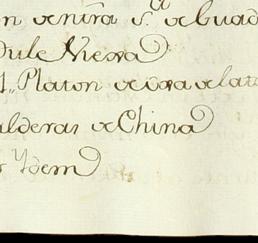 n de nr̃a S.ª de Guad
Dulze Nieva
1,, Platon de ora de lat
alderas de China
Ydem